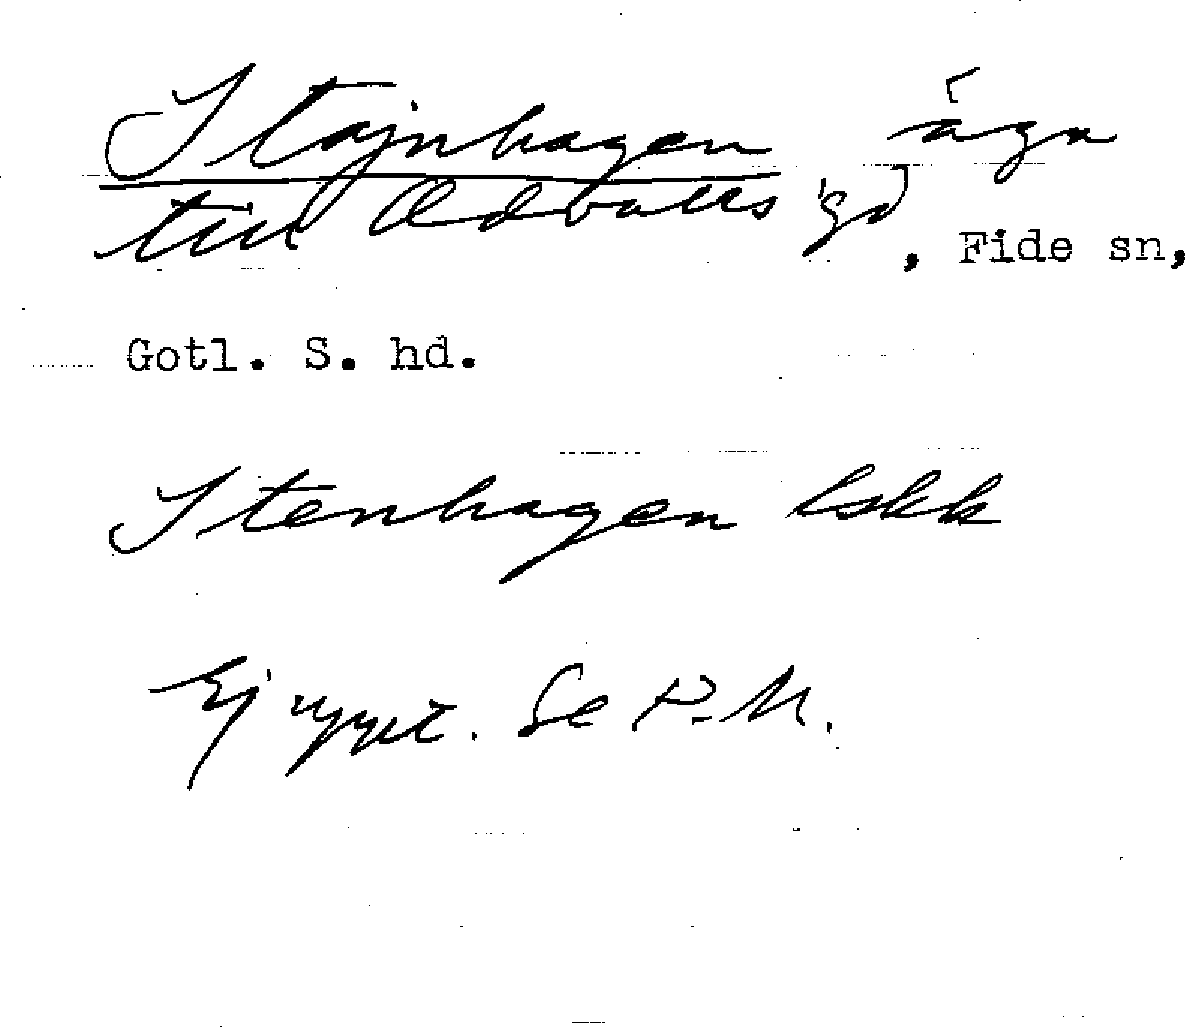 Stajnhagen äga
till Ödvalls gd, Fide sn,
Gotl. S. hd.
Stenhagen lskk
Ej uppt. Se P.M.